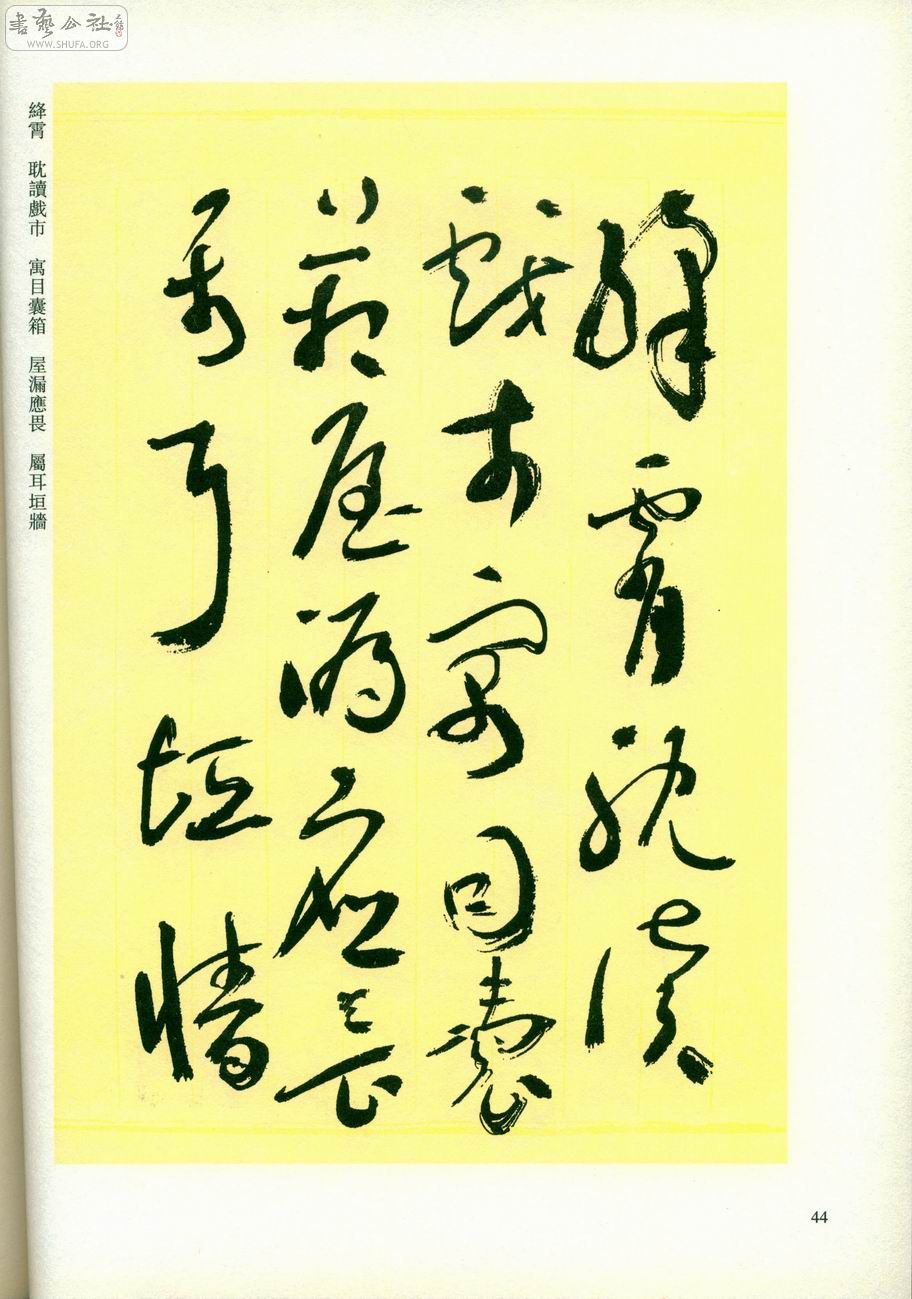 書藝公社
WWW.SHUFA.ORG
絳霄耽讀
戲市寓目囊
箱屋漏應畏
屬耳垣牆
絳霄　耽讀戲市　寓目囊箱　屋漏應畏　屬耳垣牆
44